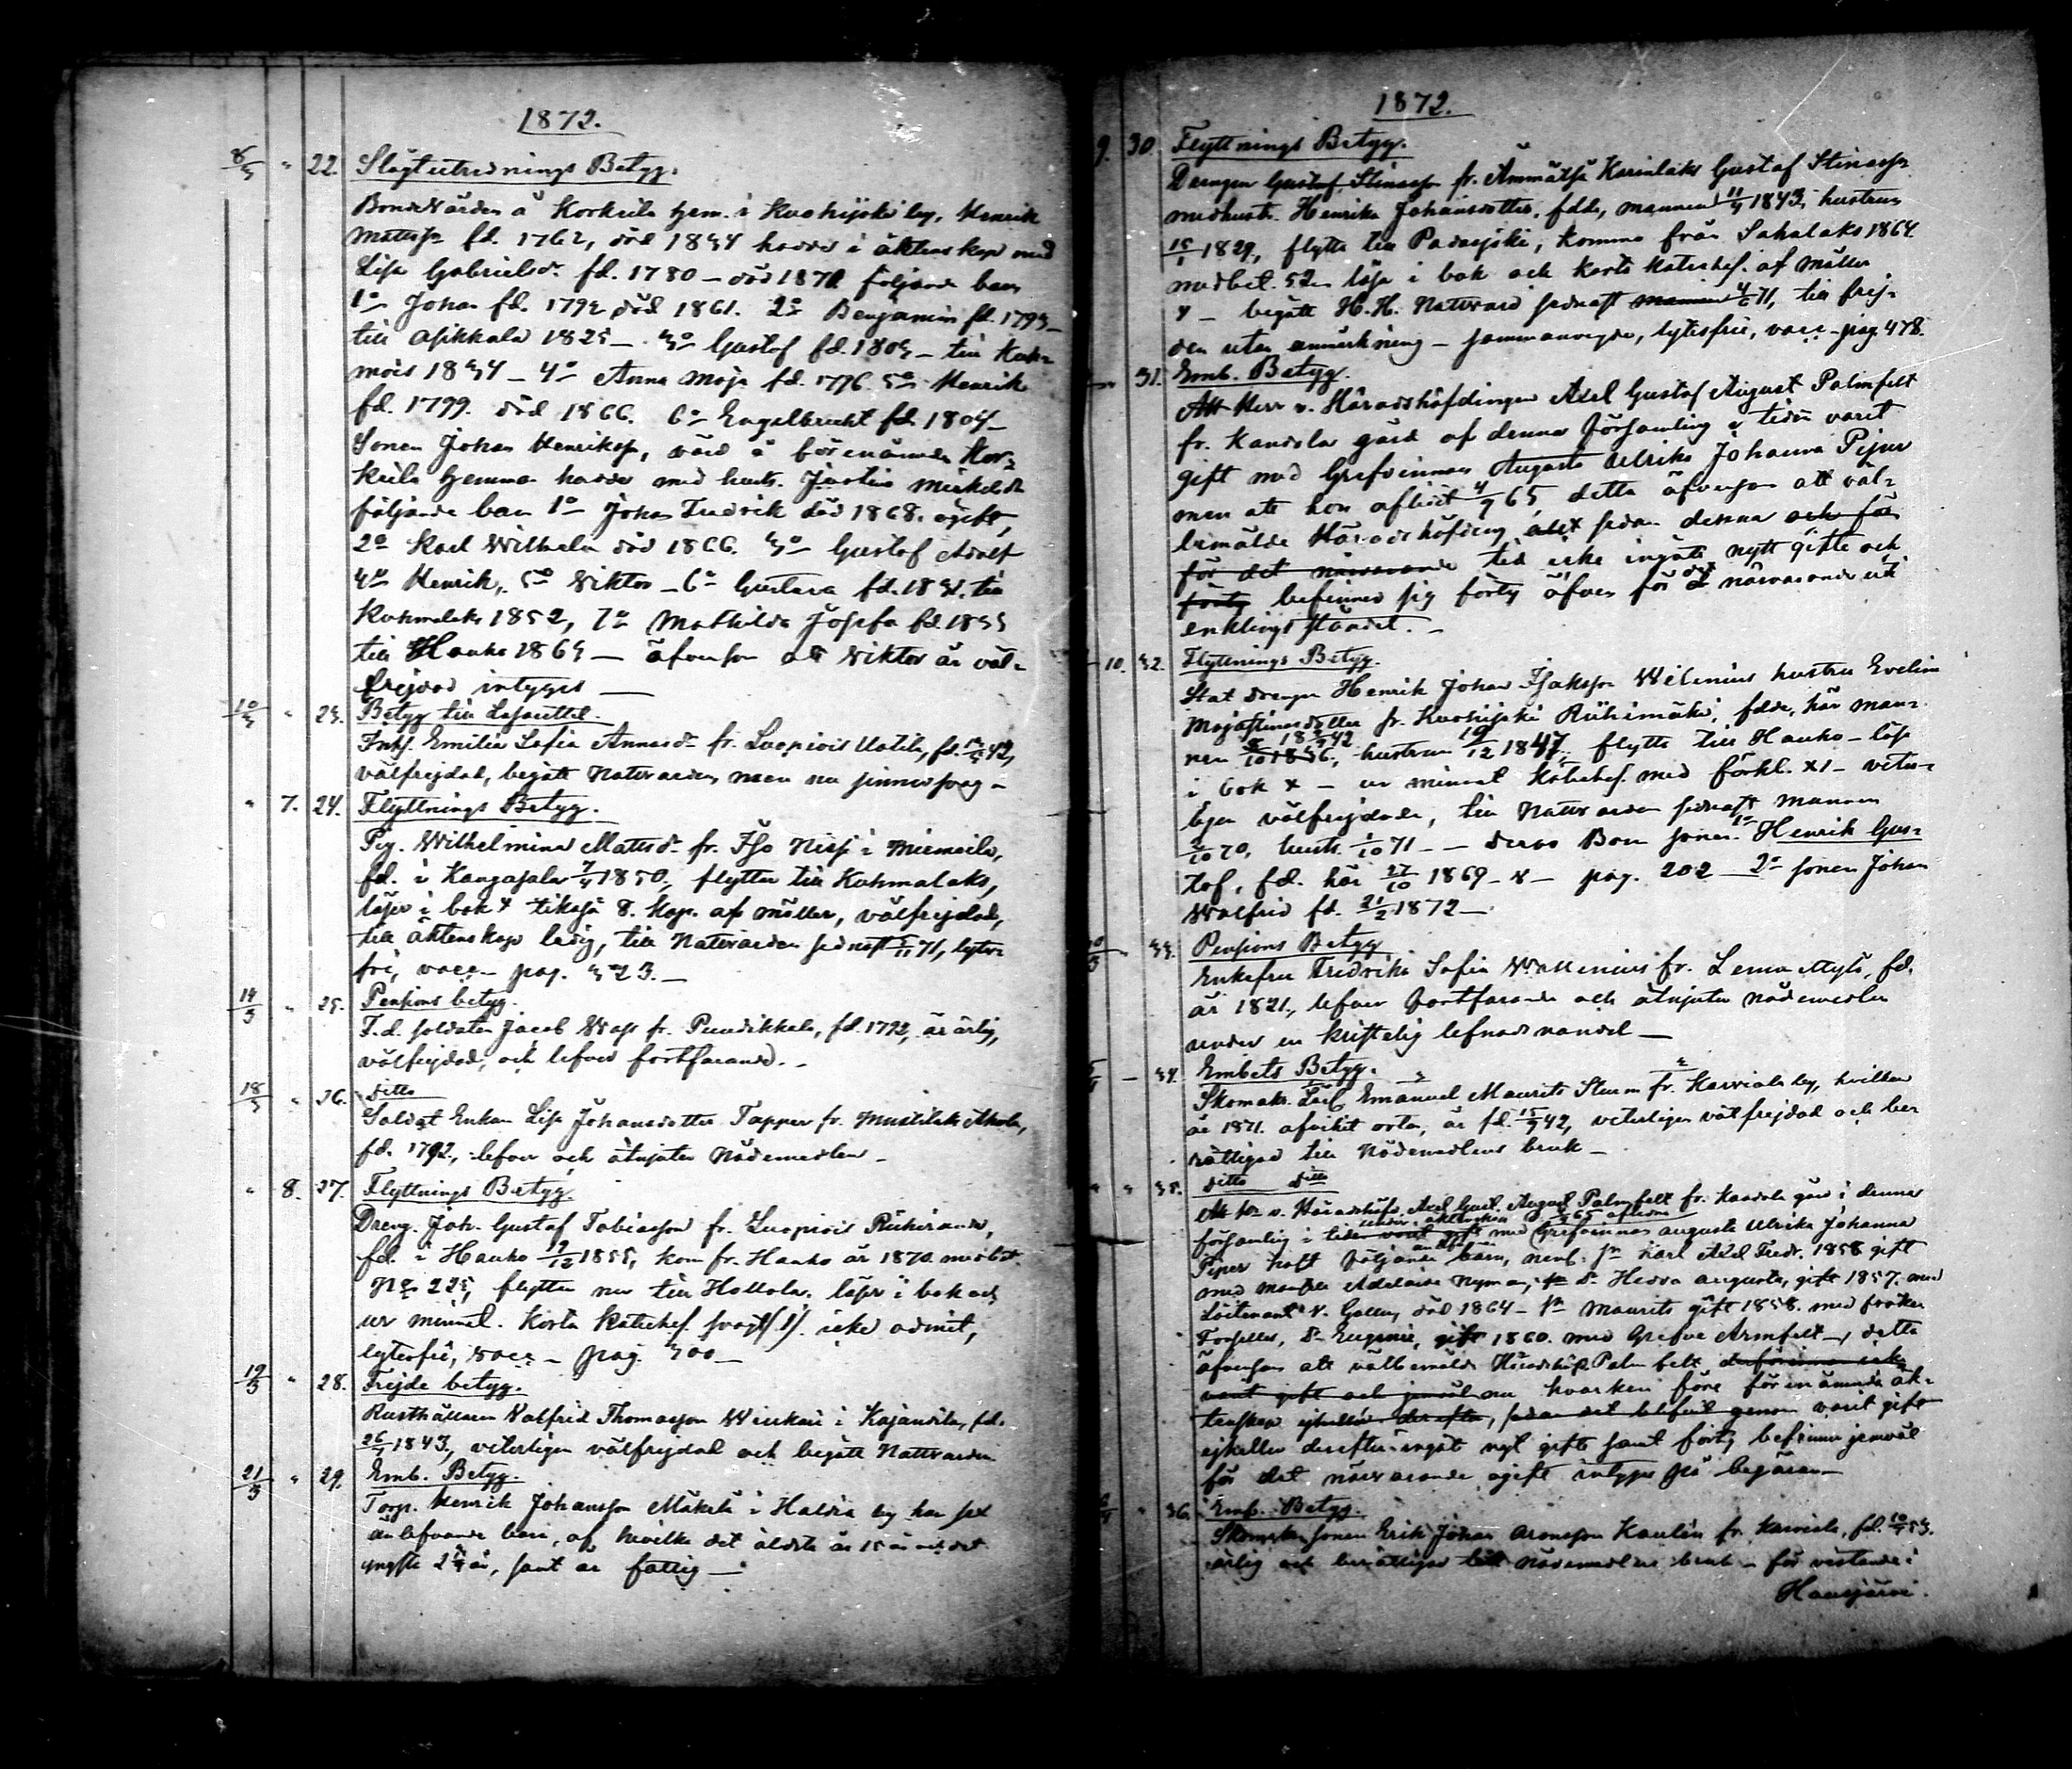 1872.
8/3 " 22. Slägtutrednings Betyg.
Bondevärden å Korkeila hem. i Kuohijoki by, Henrik
Mattss. fd. 1762, död 1834 hade i äktenskap med
Lisa Gabrielsdr. fd. 1780 – död 1870 följande barn
1o Johan fd. 1792 död 1861. 2o Benjamin fd. 1793 –
till Asikkala 1825 – 3o Gustaf fd. 1803 – till Kuh-
mois 1834 – 4o Anna Maja fd. 1796. 5o Henrik
fd. 1799. död 1866. 6o Engelbrecht fd. 1804 –
Sonen Johan Henrikss., värd å förenämnda Kor-
keila hemman hade med hustr. Justina Mickelsdr.
följande barn 1o Johan Fredrik död 1868. ogift,
2o Karl Wilhelm död 1866. 3o Gustaf Adolf
4o Henrik, 5o Viktor – 6o Gustava fd. 1831. till
Kuhmalaks 1852, 7o Mathilda Josefa fd. 1835
till Hauho 1863 – äfvensom att Viktor är väl-
frejdad intygas –
10/3 " 23. Betyg till Lasarettet.
Inhs. Emilia Sofia Annasdr. fr. Luopiois Uotila, fd. 42,
välfrejdad, begått Nattvarden, men nu sinnessvag –
" 7. 24. Flyttnings Betyg.
Pig. Wilhelmina Mattsdr. fr. Iso Nisj i Miemola,
fd. i Kangasala 7/4 1850, flyttar till Kuhmalaks,
läser i bok x tiksja 8. Kap. af möller, välfrejdad,
till äktenskap ledig, till Nattvarden sednast /11 71, lytes-
fri, vacc. – pag. 323. –
14/3 " 25. Pensions betyg.
F.d. soldaten Jacob Wass fr. Puutikkala, fd. 1792, är ärlig,
välfrejdad, och lefver fortfarande. –
18/3 " 26. Ditto
Soldat Enkan Lisa Johansdotter Tapper fr. Mustilaks Ahola,
fd. 1792, lefver och åtnjuter Nådemedlen –
" 8. 27. Flyttnings Betyg.
Dreng. Joh. Gustaf Tobiasson fr. Luopiois Riihiranda,
fd. i Hauho 19/12 1855, kom fr. Hauho år 1870 med bet.
No 225, flyttar nu till Hollola. läser i bok och
ur minnet. Korta Kateches. svagt (1). icke admit,
lytesfri, vacc – pag. 300 –
19/3 " 28. Frejde betyg.
Rusthållaren Walfrid Thomasson Wirkari i Kajandila, fd.
26/ 1843, veterligen välfrejdad och begått Nattvarden
21/3 " 29. Emb. Betyg.
Torp. Henrik Johansson Mäkelä i Haltia by har sex
än lefvande barn, af hvilka det äldsta är 15 år och det
yngsta 2 ¾ år, samt är fattig –
1872.
9. 30. Flyttnings Betyg.
Drengen Gustaf Stinasson fr. Ämmätsä Karinlaks Gustaf Stinasson
med hustr. Henrika Johansdotter, födde, mannen 11/4 1843, hustrun
15/1 1829, flytta till Padasjoki, komma från Sahalaks 1864
med bet. 52. läsa i bok och korta kateches. af möller
x – begått H.H. Nattvard sednast mannen 4/6 71, till frej-
den utan anmärkning – sammanvigde, lytesfrie, vacc. – pag. 478.
" 31. Emb. Betyg.
Att Herr v. Häradshöfdingen Axel Gustaf August Palmfelt
fr. Kandola gård af denna församling i tiden varit
gift med Grefvinnan Augusta Ulrika Johanna Pijper
men att hon aflidit 4/9 65, detta äfvensom att väl-
bemälde Häradshöfding, allt sedan denna och för
för det närvarande tid icke ingått nytt gifte och
förty befinner sig förty äfven för det närvarande uti
enklings ståndet. –
10. 32. Flyttnings Betyg.
Stat Drengen Henrik Johan Isaksson Welenius hustru Evelina
Maja Stinasdotter fr. Kuohijoki Riihimäki, födde, här man-
nen 8/10 1836, 18 2/ 42 hustrun 19/12 1847, flytta till Hauho – läsa
i bok x – ur minnet Kateches. med förkl. x1 – veter-
ligen välfrejdade, till Nattvarden sednast mannen
2/10 70, hustr. 1/10 71 – – deras Barn sonen 1o Henrik Gus-
taf, fd. här 27/10 1869 – x – pag. 202 – 2o sonen Johan
Walfrid fd. 21/2 1872 –
33. Pensions Betyg
Enkefru Fredrika Sofia Wallenius fr. Lemo Mylt, fd.
år 1821, lefver fortfarande och åtnjuter nådemedlen
under en kristelig lefnads vandel –
– 34. Embets Betyg.
Skomak. Carl Emanuel Maurits Sturm fr. Karviala by, hvilken
år 1871. afvikit orten, är fd. 15/9 42, veterligen välfrejdad och be-
rättigad till Nådemedlens bruk –
" " 35. Ditto Ditto
Att Hr v. Häradshöfd. Axel Gust. August Palmfelt fr. Kandola gård i denna
församling i tiden varit gift under äktenskap med 4/9 65 aflidna Grefvinnan Augusta Ulrika Johanna
Piper haft följande barn, neml. sn Karl Axel Fredr. 1858 gift
med mamsell Adelaide Nyman, dr Hedda Augusta, gift 1857. med
Löitenant v. Gallen, död 1864 – sn Maurits gift 1858. med fröken
Forselles, dr Eugenie, gift 1860. med Grefve Armfelt –, detta
äfvensom att välbemälde Häradshöf. Palmfelt derförinnan icke
varit gift och jemväl nu hvarken före förenämnda äk-
tenskap ejheller derefter, sedan det blifvit genom varit gift
ejheller derefter ingått nytt gifte samt förty befinner jemväl
för det närvarande ogift intygas på begäran –
" 36. Emb. Betyg.
Skomak. sonen Erik Johan Aronsson Kaulin fr. Karviala, fd. 10/ 53.
ärlig och berättigad till nådemedlens bruk – för vistande i
Hausjärvi.